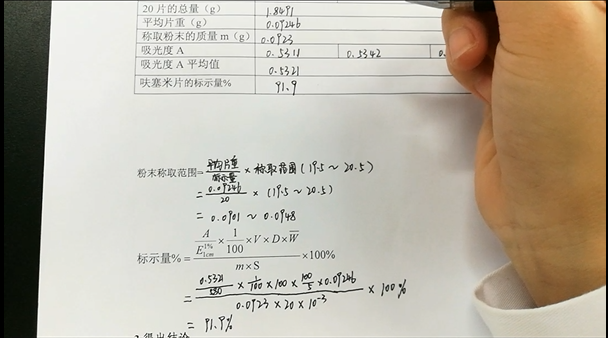 20片的总量（g） 1.8491
平均片重（g） 0.09246
称取粉末的质量m（g） 0.0923
吸光度A 0.5311 0.5342 0.
吸光度A平均值 0.5321
呋塞米片的标示量% 91.9
粉末称取范围= 平均片重/标示量 × 称取范围(19.5～20.5)
= 0.09246/20 × (19.5～20.5)
= 0.0901～0.0948
标示量%= (A/E^{1%}_{1cm} × 1/100 × V × D × W̅)/(m×S) ×100%
= (0.5321/580 × 1/100 × 100 × 100/5 × 0.09246)/(0.0923 × 20 × 10⁻³) × 100%
= 91.9%